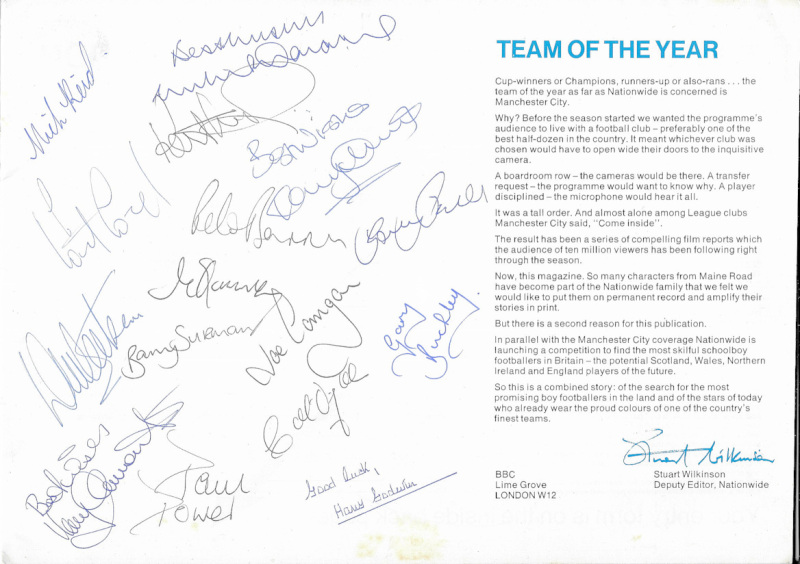 Mick Reid.
Best Wishes
Best Wishes
Joe Corrigan
Gary
Buckley.
Barry Silkman
Paul
Power
Good luck,
Harry Godwin
TEAM OF THE YEAR
Cup-winners or Champions, runners-up or also-rans . . . the
team of the year as far as Nationwide is concerned is
Manchester City.
Why? Before the season started we wanted the programme's
audience to live with a football club – preferably one of the
best half-dozen in the country. It meant whichever club was
chosen would have to open wide their doors to the inquisitive
camera.
A boardroom row – the cameras would be there. A transfer
request – the programme would want to know why. A player
disciplined – the microphone would hear it all.
It was a tall order. And almost alone among League clubs
Manchester City said, "Come inside".
The result has been a series of compelling film reports which
the audience of ten million viewers has been following right
through the season.
Now, this magazine. So many characters from Maine Road
have become part of the Nationwide family that we felt we
would like to put them on permanent record and amplify their
stories in print.
But there is a second reason for this publication.
In parallel with the Manchester City coverage Nationwide is
launching a competition to find the most skilful schoolboy
footballers in Britain – the potential Scotland, Wales, Northern
Ireland and England players of the future.
So this is a combined story: of the search for the most
promising boy footballers in the land and of the stars of today
who already wear the proud colours of one of the country's
finest teams.
Stuart Wilkinson
BBC
Lime Grove
LONDON W12
Stuart Wilkinson
Deputy Editor, Nationwide